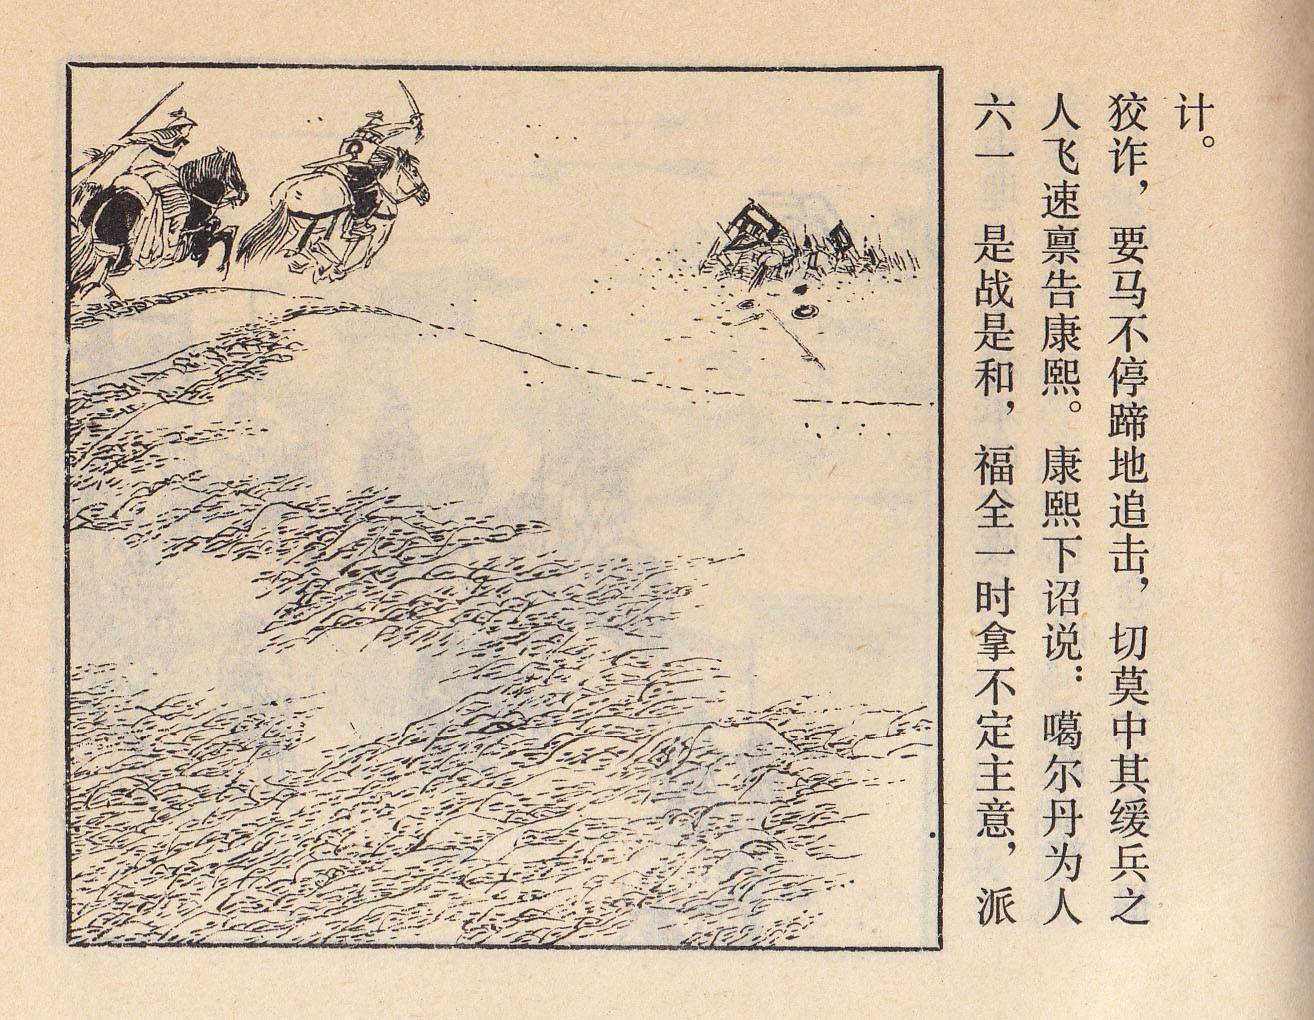 六一 是战是和，福全一时拿不定主意，派
人飞速禀告康熙。康熙下诏说：噶尔丹为人
狡诈，要马不停蹄地追击，切莫中其缓兵之
计。